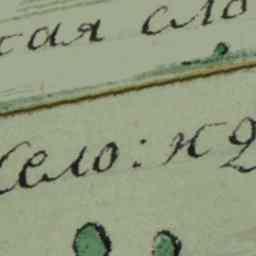 тая сло
село: кД